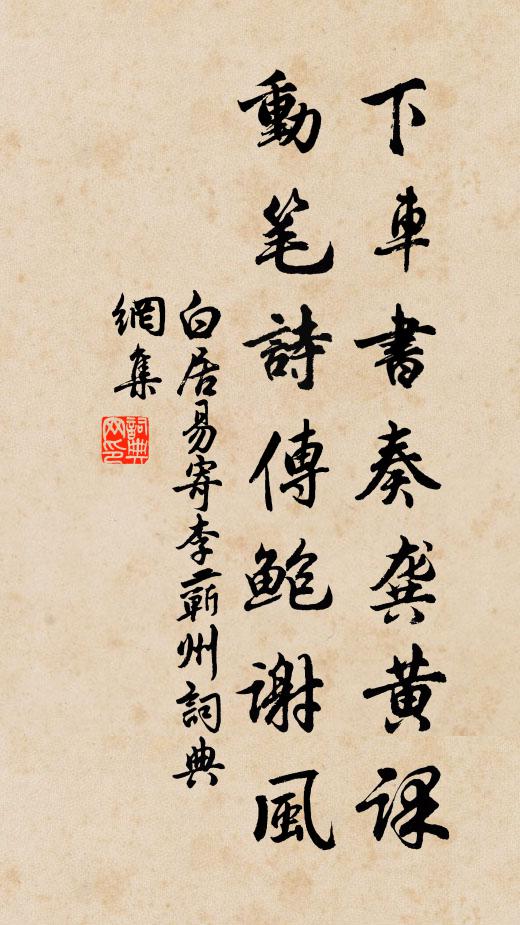 下車書奏龔黄課
動笔詩傳鮑謝風
白居易寄李蘄州詞典
網集
詞典網印